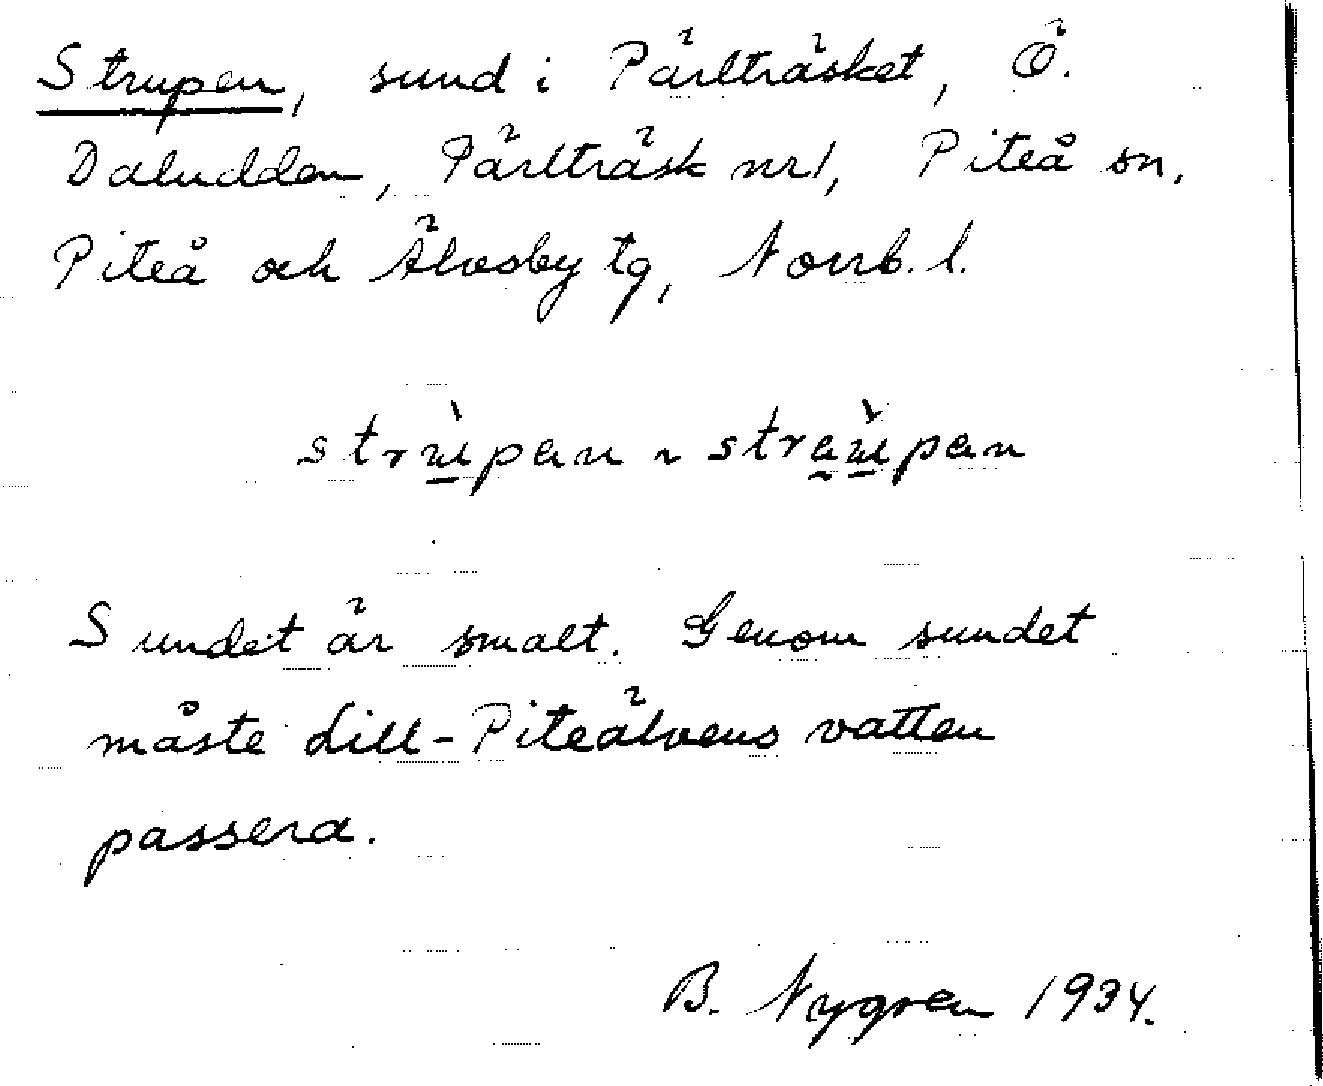 Strupen, sund i Pärlträsket, Ö.
Daludden, Pärlträsk nr 1, Piteå sn,
Piteå och Älvsby tg, Norrb. l.
strù̱pan ~ stra̱ù̱pan
Sundet är smalt. Genom sundet
måste Lill-Piteälvens vatten
passera.
B. Nygren 1934.